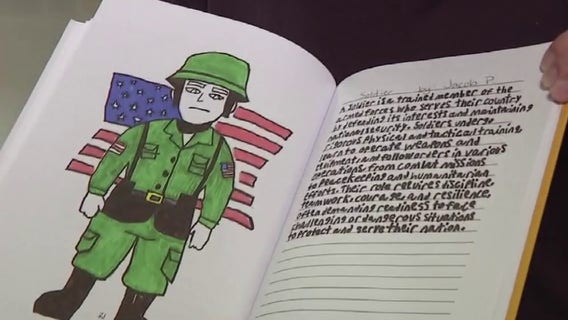 Soldier by Jacob P.
A Soldier is a trained member of the
armed forces who serves their country
by defending its interests and maintaining
national security. Soldiers undergo
rigorous physical and tactical training,
learn to operate weapons and
equipment, and follow orders in various
operations, from combat missions
to peacekeeping and humanitarian
efforts. Their role requires discipline,
teamwork, courage, and resilience,
often demanding readiness to face
challenging or dangerous situations
to protect and serve their nation.